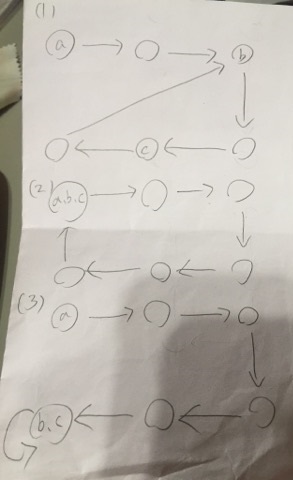 (1)
a b
c
(2) a.b.c
(3) a
b.c